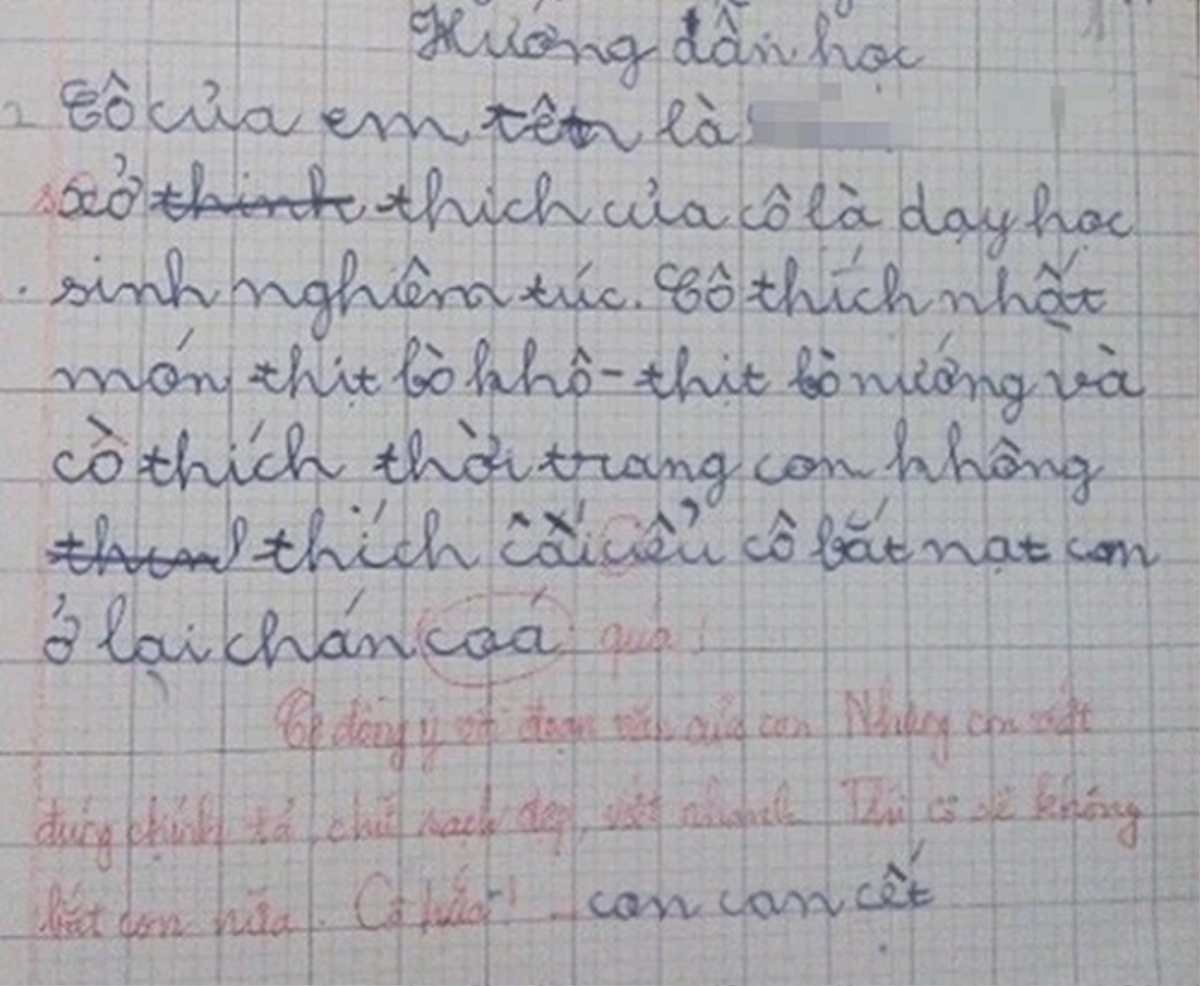 Hướng dẫn học
Cô của em tên là
xở thinh thich của cô là dạy học
sinh nghiêm túc. Cô thích nhất
món thịt bò khô - thịt bò nướng và
cồ thích thời trang con không
thích cái kiểu cô bắt nạt con
ở lại chán coá quá!
Cô đồng ý với đoạn văn của con Nhưng con viết
đúng chính tả, chữ sạch đẹp, viết nhanh Thì cô sẽ không
bắt con nữa. Cô hứa! con can cết